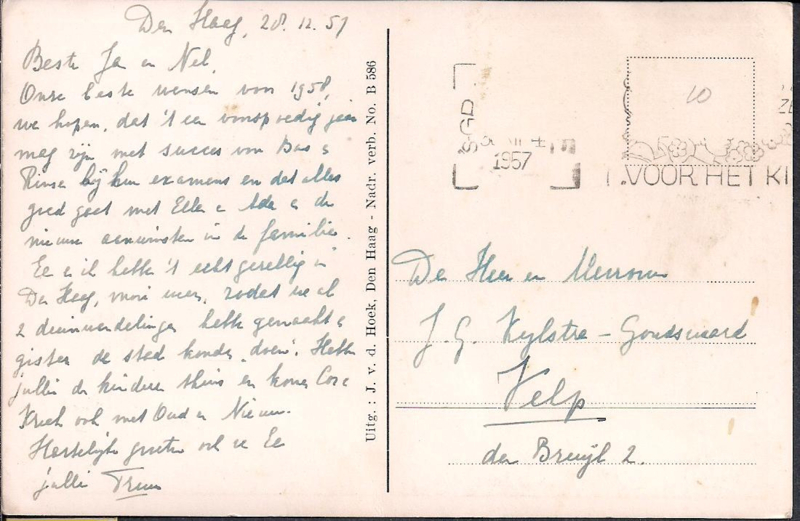 Den Haag, 28.12.57
Beste Ja en Nel,
Onze beste wensen voor 1958,
we hopen, dat 't een voorspoedig jaar
mag zijn met succes van Bas &
Rinse bij hun examens en dat alles
goed gaat met Ellen & Ada & de
nieuwe aanwinsten in de familie.
Ee & ik hebben 't echt gezellig in
Den Haag, mooi weer, zodat we al
2 duinwandelingen hebben gemaakt &
gisteren de stad konden "doen". Hebben
jullie de kinderen thuis en komen Cor &
ook met Oud en Nieuw.
Hartelijke groeten ook van Ee
jullie Truus
Uitg.: J. v. d. Hoek, Den Haag - Nadr. verb. No. B 586
1957
10
VOOR HET KI
De Heer en Mevrouw
J. G. Kylstra-Goudswaard
Velp
den Bruyl 2.